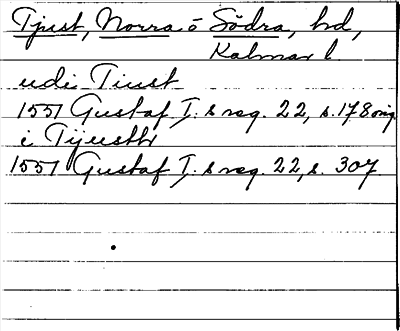 Tjust, Norra o Södra, hd,
Kalmar l
udi Tiust
1551 Gustaf I.s reg. 22, s. 178 orig
i Tijusth
1551 Gustaf I.s reg. 22, s. 307